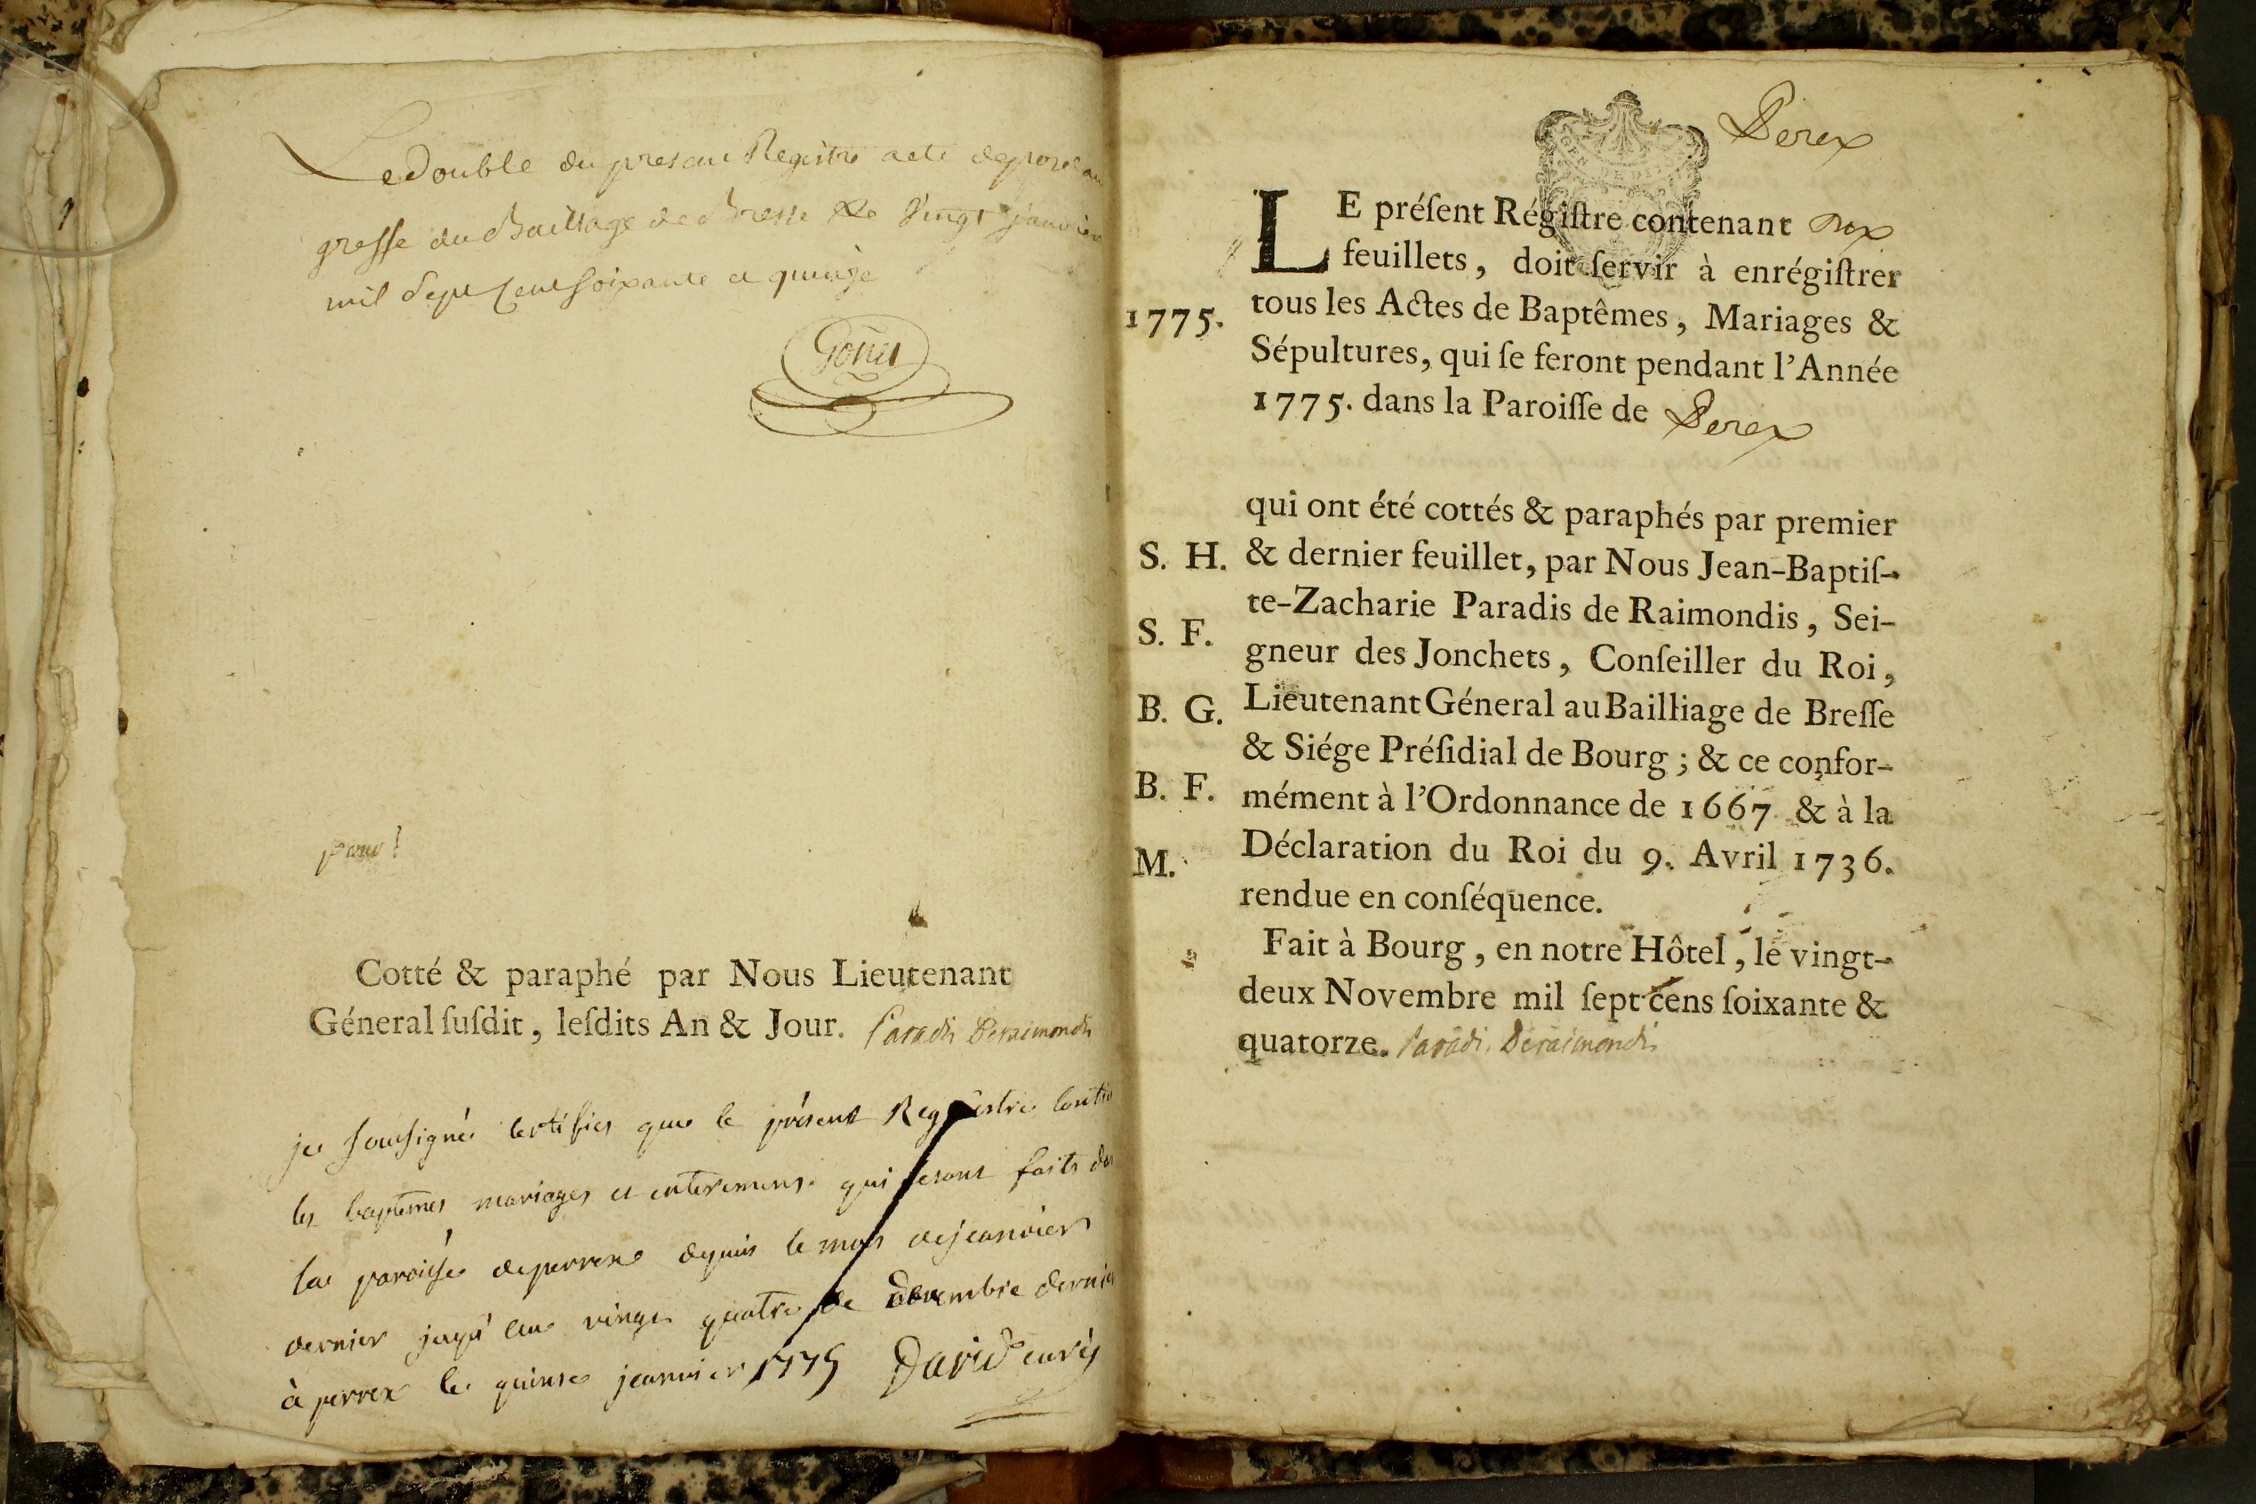 Le Double du present Registre a eté deposé au
greffe du Bailliage de Bresse le vingt janvier
mil sept cent soixante et quinze
Cotté & paraphé par Nous Lieutenant
Géneral ſuſdit, leſdits An & Jour. Paradis Deraimondis
je soussigné certifies que le présent Registre
les baptemes mariages et enterremens qui se sont faits
la paroisse de perrex depuis le mois de jeanvier
dernier jusqu'au vingt quatre de décembre dernier
à perrex le quinse jeanvier 1775 David curé
Perex
LE préſent Régiſtre contenant
feuillets, doit ſervir à enrégiſtrer
1775. tous les Actes de Baptêmes, Mariages &
Sépultures, qui ſe feront pendant l'Année
1775. dans la Paroiſſe de Perex
qui ont été cottés & paraphés par premier
S. H. & dernier feuillet, par Nous Jean-Baptiſ-
te-Zacharie Paradis de Raimondis, Sei-
S. F. gneur des Jonchets, Conſeiller du Roi,
B. G. Lieutenant Géneral au Bailliage de Breſſe
& Siége Préſidial de Bourg ; & ce confor-
B. F. mément à l'Ordonnance de 1667 & à la
M. Déclaration du Roi du 9. Avril 1736.
rendue en conſéquence.
Fait à Bourg, en notre Hôtel, le vingt-
deux Novembre mil ſept cens ſoixante &
quatorze. Paradis Deraimondis